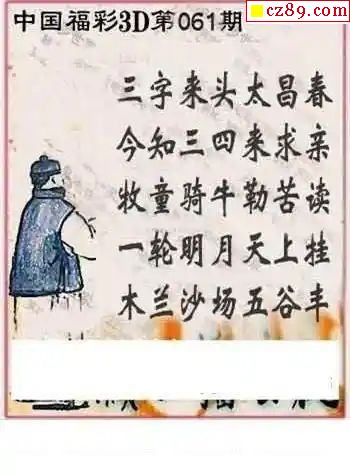 中国福彩3D第061期
cz89.com
三字来头太昌春
今知三四来求亲
牧童骑牛勒苦读
一轮明月天上挂
木兰沙场五谷丰